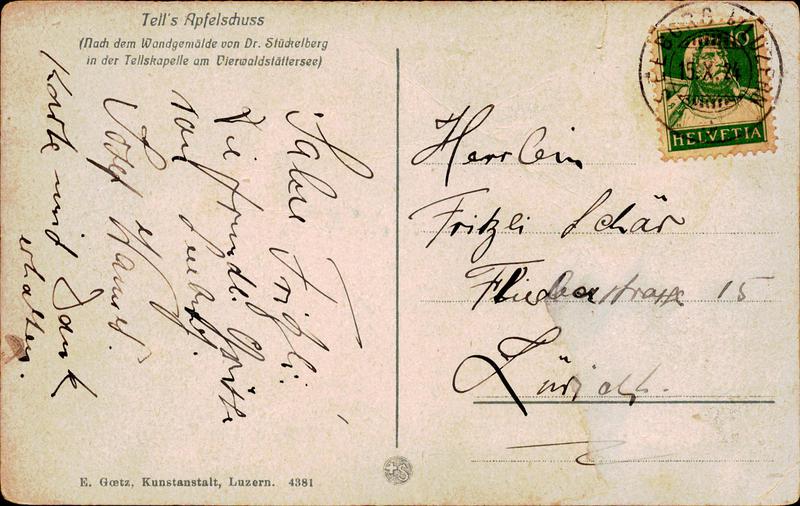 Tell's Apfelschuss
(Nach dem Wandgemälde von Dr. Stückelberg
in der Tellskapelle am Vierwaldstättersee)
Salü Fritzli!
Die freundl. Grüsse
von
Karte und Dank
erhalten.
E. Gœtz, Kunstanstalt, Luzern. 4381
10
HELVETIA
Herrlein
Fritzli Schär
Fliederstrasse 15
Zürich.